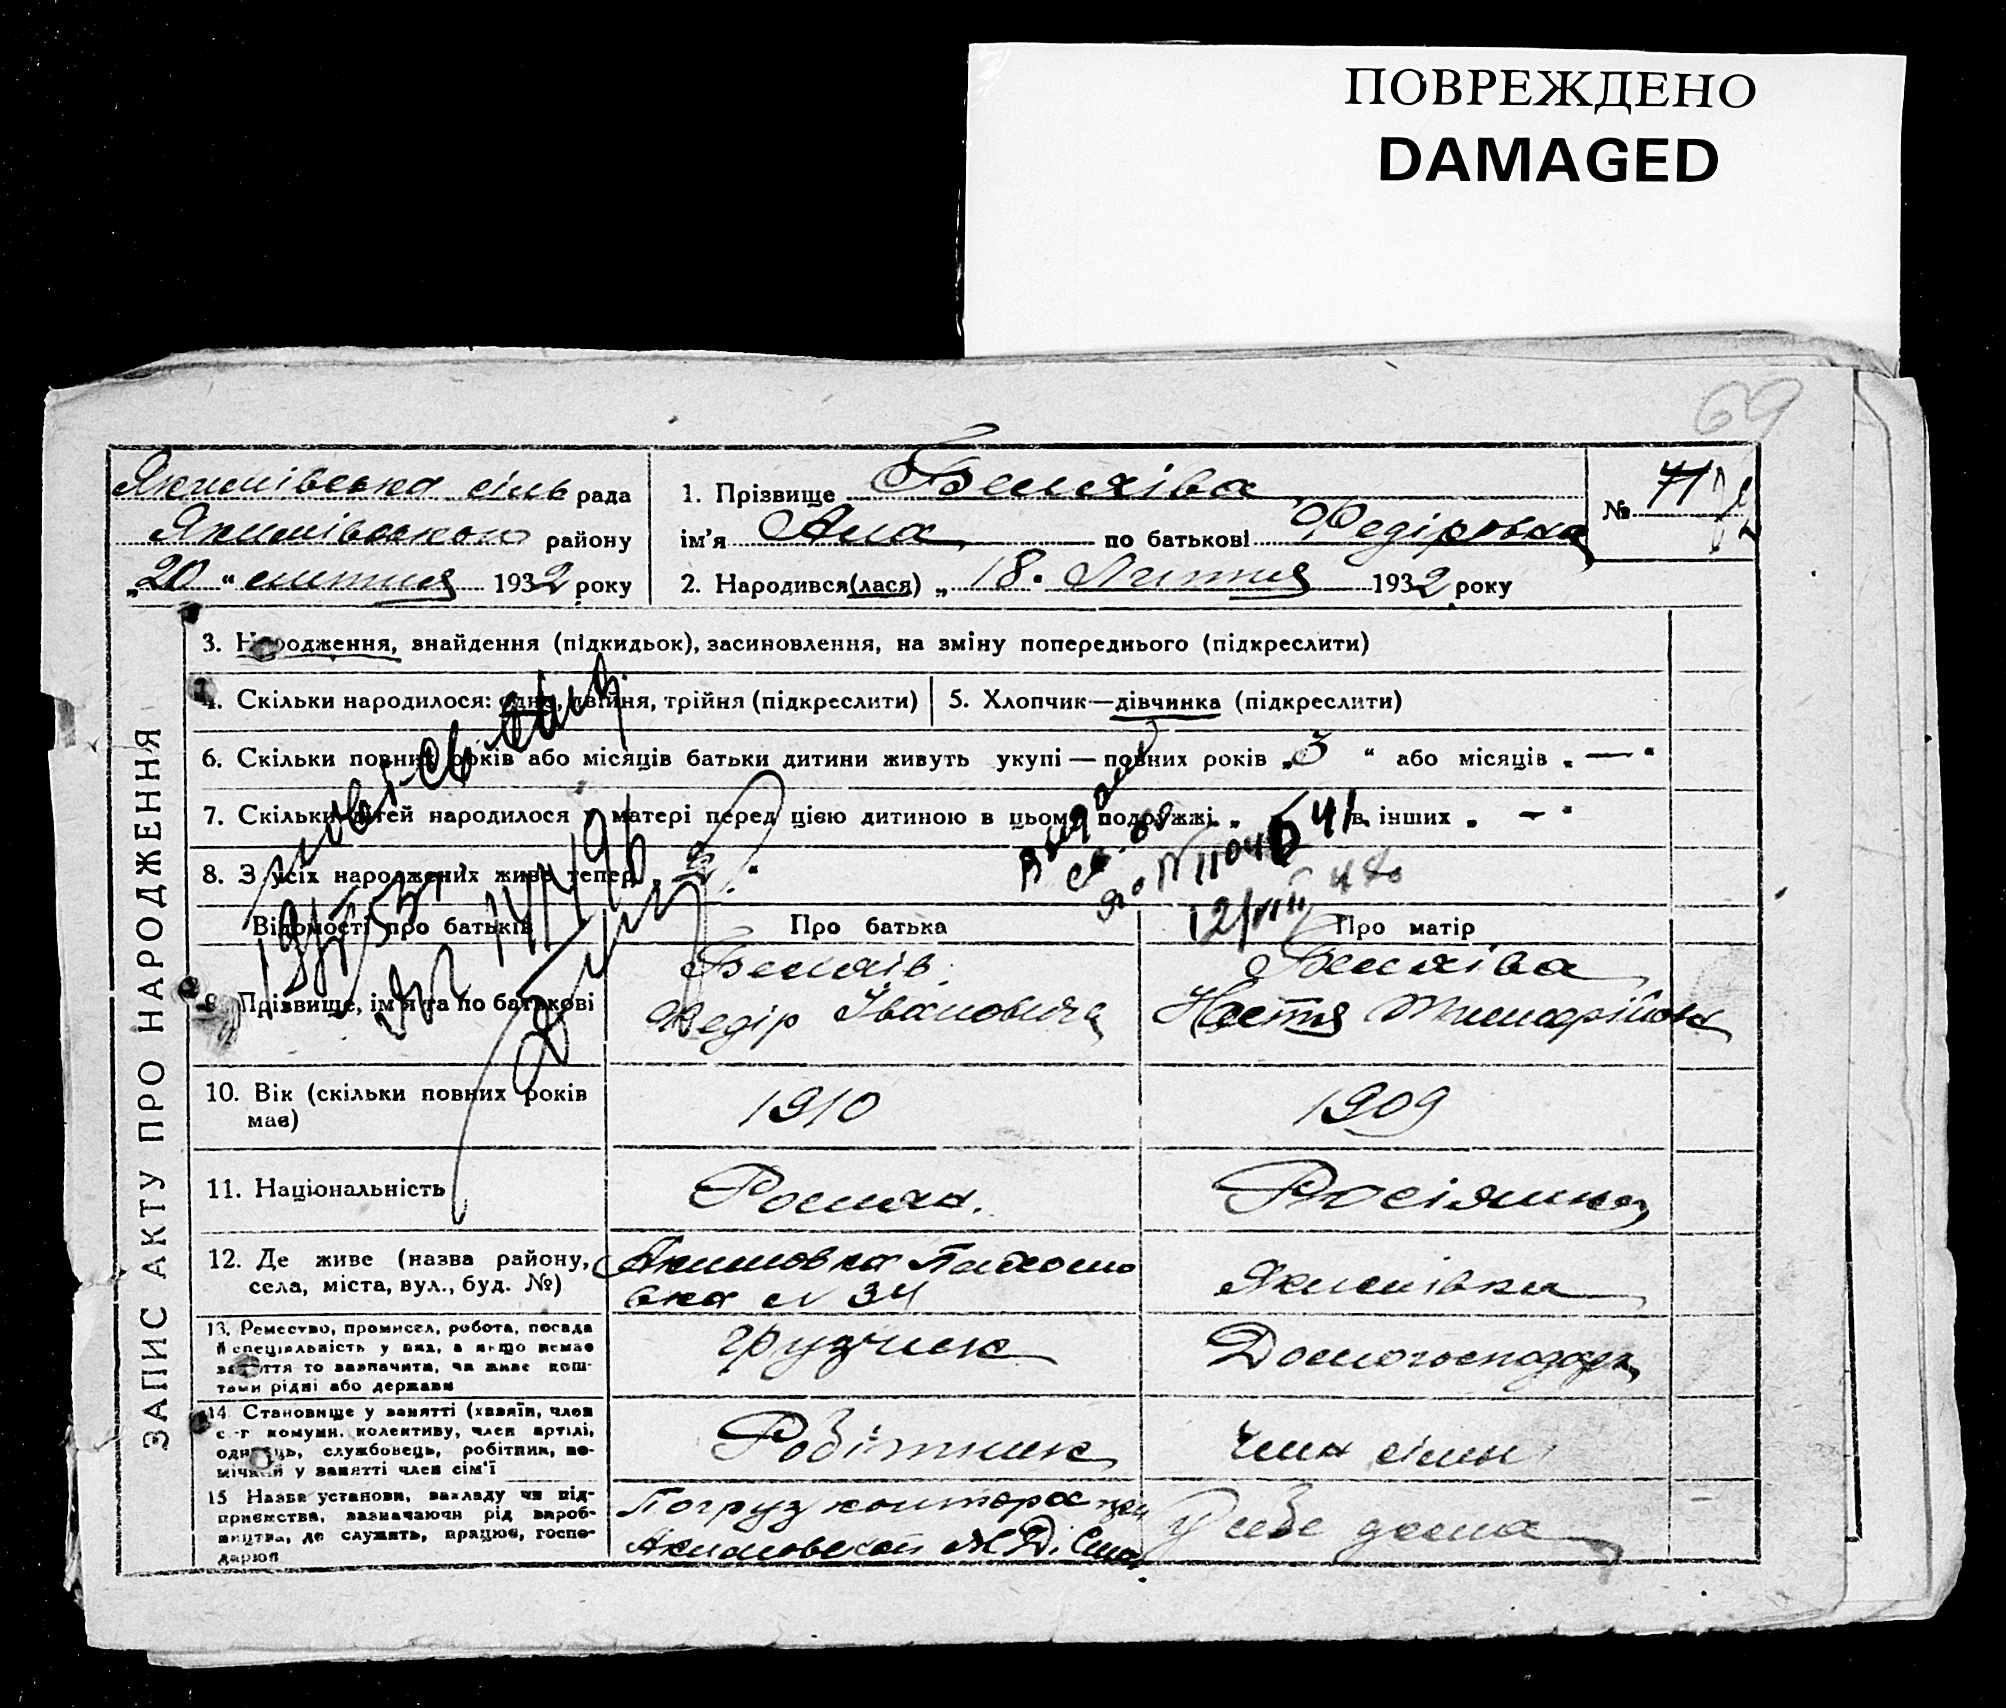 ПОВРЕЖДЕНО
DAMAGED
69
Якимівська сіль рада
Якимівського району
„20 “ лютия 1932 року
1. Прізвище Беляіва
ім'я Ана по батькові Федіровна
2. Народився(лася) „ 18 “ Лютия 1932 року
№ 71
ЗАПИС АКТУ ПРО НАРОДЖЕННЯ
3. Народження, знайдення (підкидьок), засиновлення, на зміну попереднього (підкреслити)
4. Скільки народилося: одна, двійня, трійня (підкреслити)
5. Хлопчик—дівчинка (підкреслити)
6. Скільки повних років або місяців батьки дитини живуть укупі — повних років „ 3 “ або місяців „ — “
7. Скільки дітей народилося у матері перед цією дитиною в цьому подружжі „ в інших „ — “
8. З усіх народжених живе тепер „ 2 “
№ 11046
12/VIII
Відомості про батьків
Про батька
Про матір
9. Прізвище, ім'я та по батькові
Беляів
Федір Івановича
Беляіва
Настя
10. Вік (скільки повних років має)
1910
1909
11. Національність
Росіянка
12. Де живе (назва району, села, міста, вул., буд. №)
Акимовка
вка № 34
Якимівка
13. Ремество, промисел, робота, посада й спеціяльність у них, а якщо немає заняття то зазначити, чи живе коштами рідні або держави
грузчик
Домогосподарк
14 Становище у занятті (хазяїн, член с.-г комуни, колективу, член артілі, одинець, службовець, робітник, помічний у занятті член сім'ї
Робітник
член сімьи
15 Назва установи, закладу чи підприємства, зазначаючи рід виробництва, де служить, працює, господарює
Погруз контора
Акимовской
У себе дома